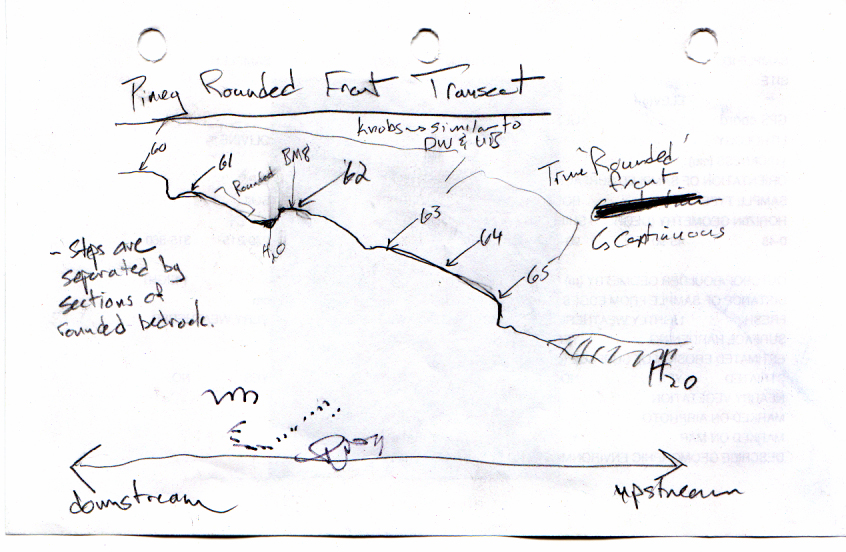 Piney Rounded Front Transect
knobs similar to
DW & UB
60
61
Rounded
BM8
62
H2O
63
64
65
True "Rounded"
front
Continuous
- Steps are
separated by
sections of
rounded bedrock.
H2O
downstream
upstream